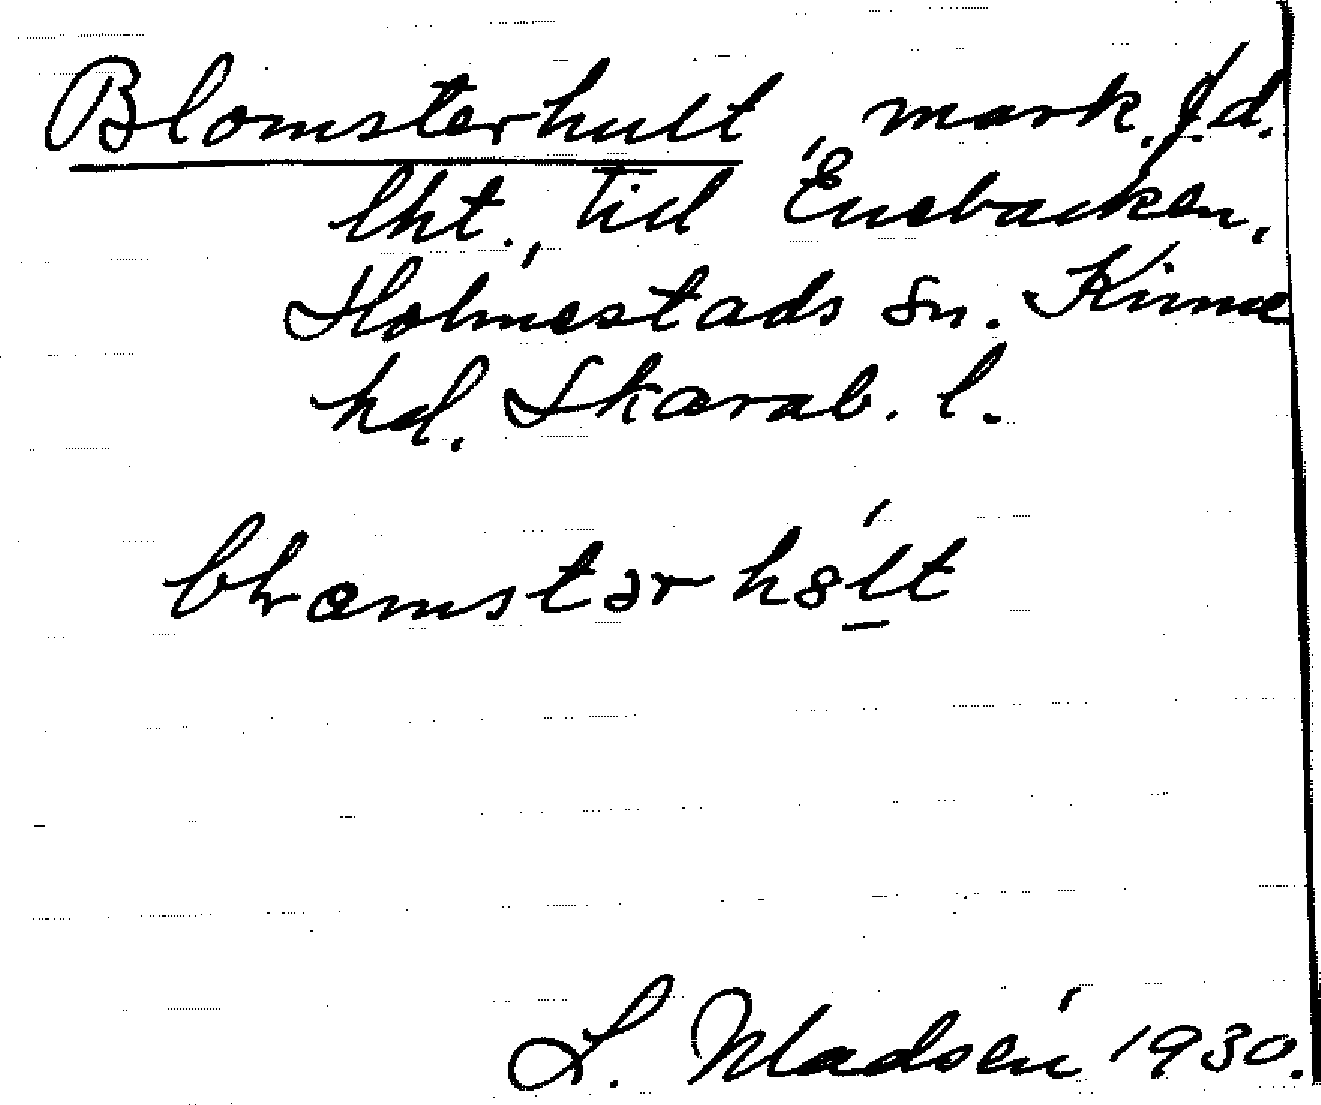 Blomsterhult, mark. f.d.
lht., till Enebacken,
Holmestads sn. Kinne
hd. Skarab. l.
blomstər hɞ́lt
L. Madsén 1930.